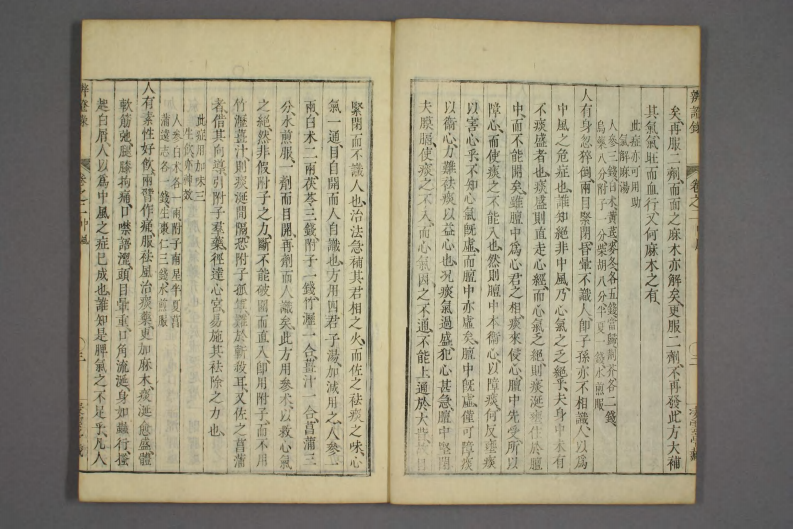 矣再服二劑而面之麻木亦解矣更服二劑不再發此方大補
其氣氣旺而血行又何麻木之有
此症亦可用助
氣解麻湯
人參三錢白朮黃芪麥冬各五錢當歸荊芥各二錢
烏藥八分附子一分柴胡八分半夏一錢水煎服
人有身忽猝倒兩目緊閉昏暈不識人即子孫亦不相識人以為
中風之危症也誰知絕非中風乃心氣之乏絕乎夫身中未有
不痰盛者也痰盛則直走心經而心氣之絕則痰涎壅住於膻
中而不能開矣雖膻中為心君之相痰來侵心膻中先受所以
障心而使痰之不能入也然則膻中本衛心以障痰何反壅痰
以害心乎不知心氣既虛而膻中亦虛矣膻中既虛僅可障痰
以衛心力難祛痰以益心也況痰氣過盛犯心甚急膻中堅閉
夫膜膈使痰之不入而心氣因之不通不能上通於大
緊閉而不識人也治法急補其君相之火而佐之祛痰之味心
氣一通目自開而人自識也方用四君子湯加減用之人參二
兩白朮二兩茯苓三錢附子一錢竹瀝一合薑汁一合菖蒲三
分水煎服一劑而目開再劑而人識矣此方用參朮以救心氣
之絕然非假附子之力斷不能破圍而直入即用附子而不用
竹瀝薑汁則痰涎間隔恐附子孤氣難於斬救耳又佐之菖蒲
者借其向導引附子群藥徑達心宮易施其祛除之力也
此症用加味三
生飲亦神效
人參白朮各一兩附子南星半夏菖
蒲遠志各一錢生棗仁三錢水煎服
人有素性好飲兩臂作痛服祛風治痰藥更加麻木痰涎愈盛體
軟筋弛腿膝拘痛口噤語澀頭目暈重口角流涎身如蟲行搔
起白屑人以為中風之症已成也誰知是脾氣之不足乎凡人
辨證錄
卷之二中風
三